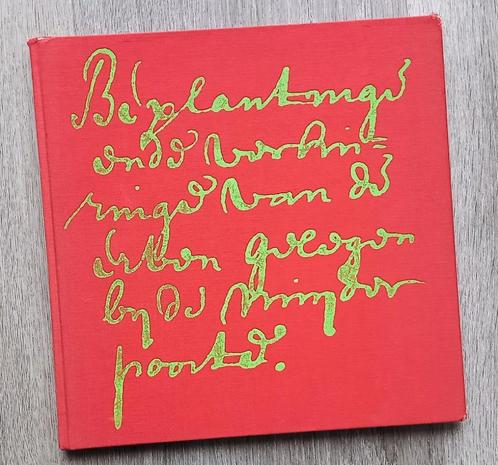 Beplantinge
ende verhu=
ringe van de
erven gelegen
by de Muyder
poorte.